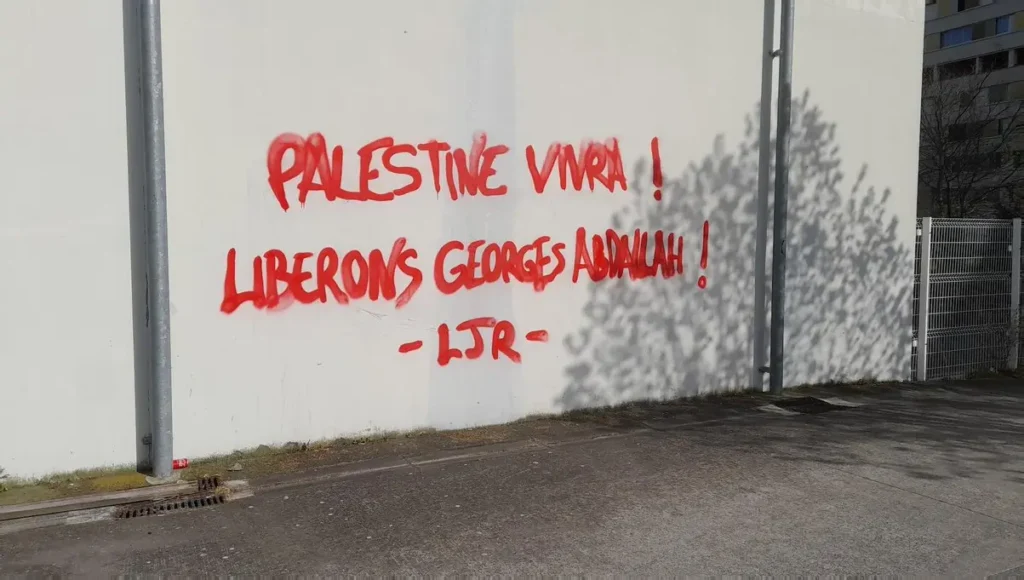 PALESTINE VIVRA !
LIBERONS GEORGES ABDALLAH !
- LJR -